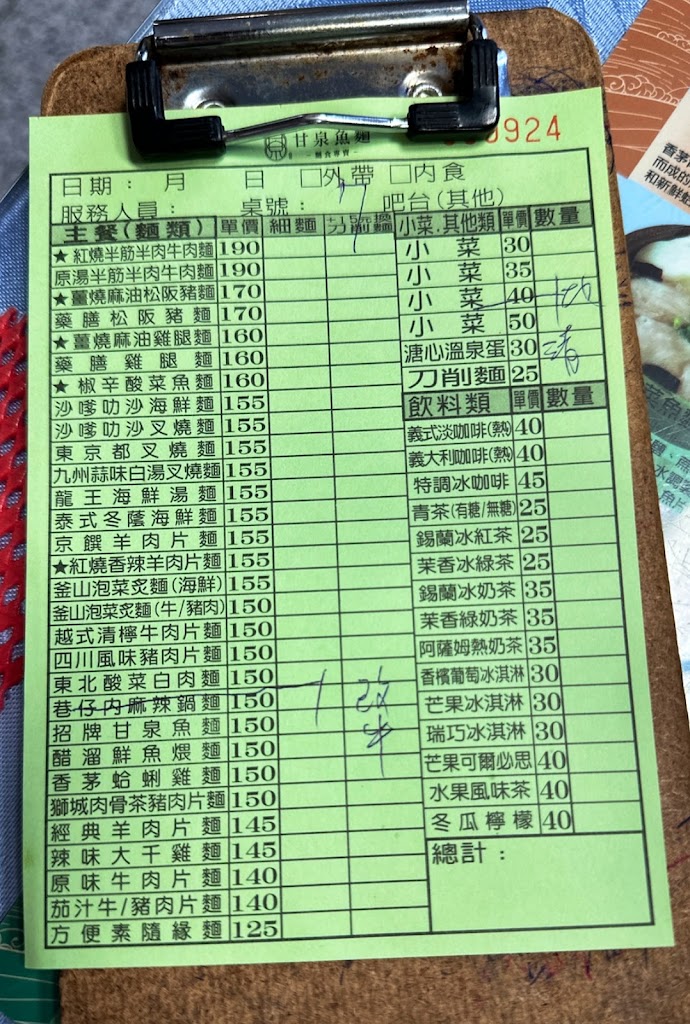 甘泉魚麵
麵食專賣
0924
日期： 月 日 □外帶 □內食
服務人員： 桌號： 吧台(其他)
主餐(麵類) 單價 細麵 +15 刀削麵
★紅燒半筋半肉牛肉麵 190
原湯半筋半肉牛肉麵 190
★薑燒麻油松阪豬麵 170
藥膳松阪豬麵 170
★薑燒麻油雞腿麵 160
藥膳雞腿麵 160
★椒辛酸菜魚麵 160
沙嗲叻沙海鮮麵 155
沙嗲叻沙叉燒麵 155
東京都叉燒麵 155
九州蒜味白湯叉燒麵 155
龍王海鮮湯麵 155
泰式冬蔭海鮮麵 155
京饌羊肉片麵 155
★紅燒香辣羊肉片麵 155
釜山泡菜炙麵(海鮮) 155
釜山泡菜炙麵(牛/豬肉) 150
越式清檸牛肉片麵 150
四川風味豬肉片麵 150
東北酸菜白肉麵 150
巷仔內麻辣鍋麵 150 1 改牛
招牌甘泉魚麵 150
醋溜鮮魚煨麵 150
香茅蛤蜊雞麵 150
獅城肉骨茶豬肉片麵 150
經典羊肉片麵 145
辣味大千雞麵 145
原味牛肉片麵 140
茄汁牛/豬肉片麵 140
方便素隨緣麵 125
小菜.其他類 單價 數量
小菜 30
小菜 35
小菜 40
小菜 50
溏心溫泉蛋 30
刀削麵 25
飲料類 單價 數量
義式淡咖啡(熱) 40
義大利咖啡(熱) 40
特調冰咖啡 45
青茶(有糖/無糖) 25
錫蘭冰紅茶 25
茉香冰綠茶 25
錫蘭冰奶茶 35
茉香綠奶茶 35
阿薩姆熱奶茶 35
香檳葡萄冰淇淋 30
芒果冰淇淋 30
瑞巧冰淇淋 30
芒果可爾必思 40
水果風味茶 40
冬瓜檸檬 40
總計：
香茅
而成的
和新鮮